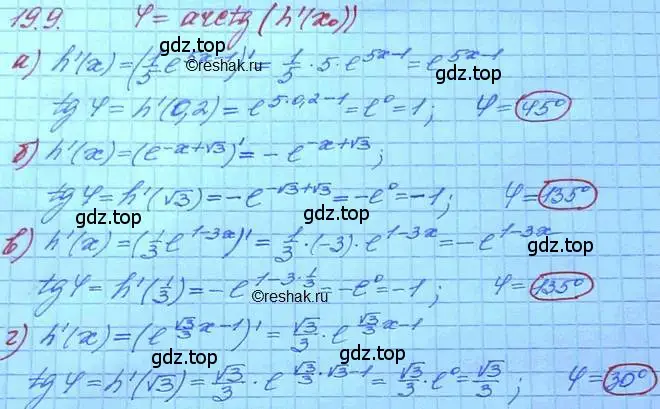 19.9. φ = arctg (h'(x₀))
gdz.top
а) h'(x) = (1/5 e^(5x-1))' = 1/5 · 5 · e^(5x-1) = e^(5x-1)
©reshak.ru
gdz.top
tg φ = h'(0,2) = e^(5·0,2-1) = e⁰ = 1; φ = 45°
б) h'(x) = (e^(-x+√3))' = -e^(-x+√3);
gdz.top
tg φ = h'(√3) = -e^(-√3+√3) = -e⁰ = -1; φ = 135°
gdz.top
в) h'(x) = (1/3 e^(1-3x))' = 1/3 · (-3) · e^(1-3x) = -e^(1-3x)
gdz.top
tg φ = h'(1/3) = -e^(1-3·1/3) = -e⁰ = -1; φ = 135°
©reshak.ru
г) h'(x) = (e^(√3/3 x-1))' = √3/3 · e^(√3/3 x-1)
gdz.top
tg φ = h'(√3) = √3/3 · e^(√3/3·√3-1) = √3/3 · e⁰ = √3/3; φ = 30°
gdz.top